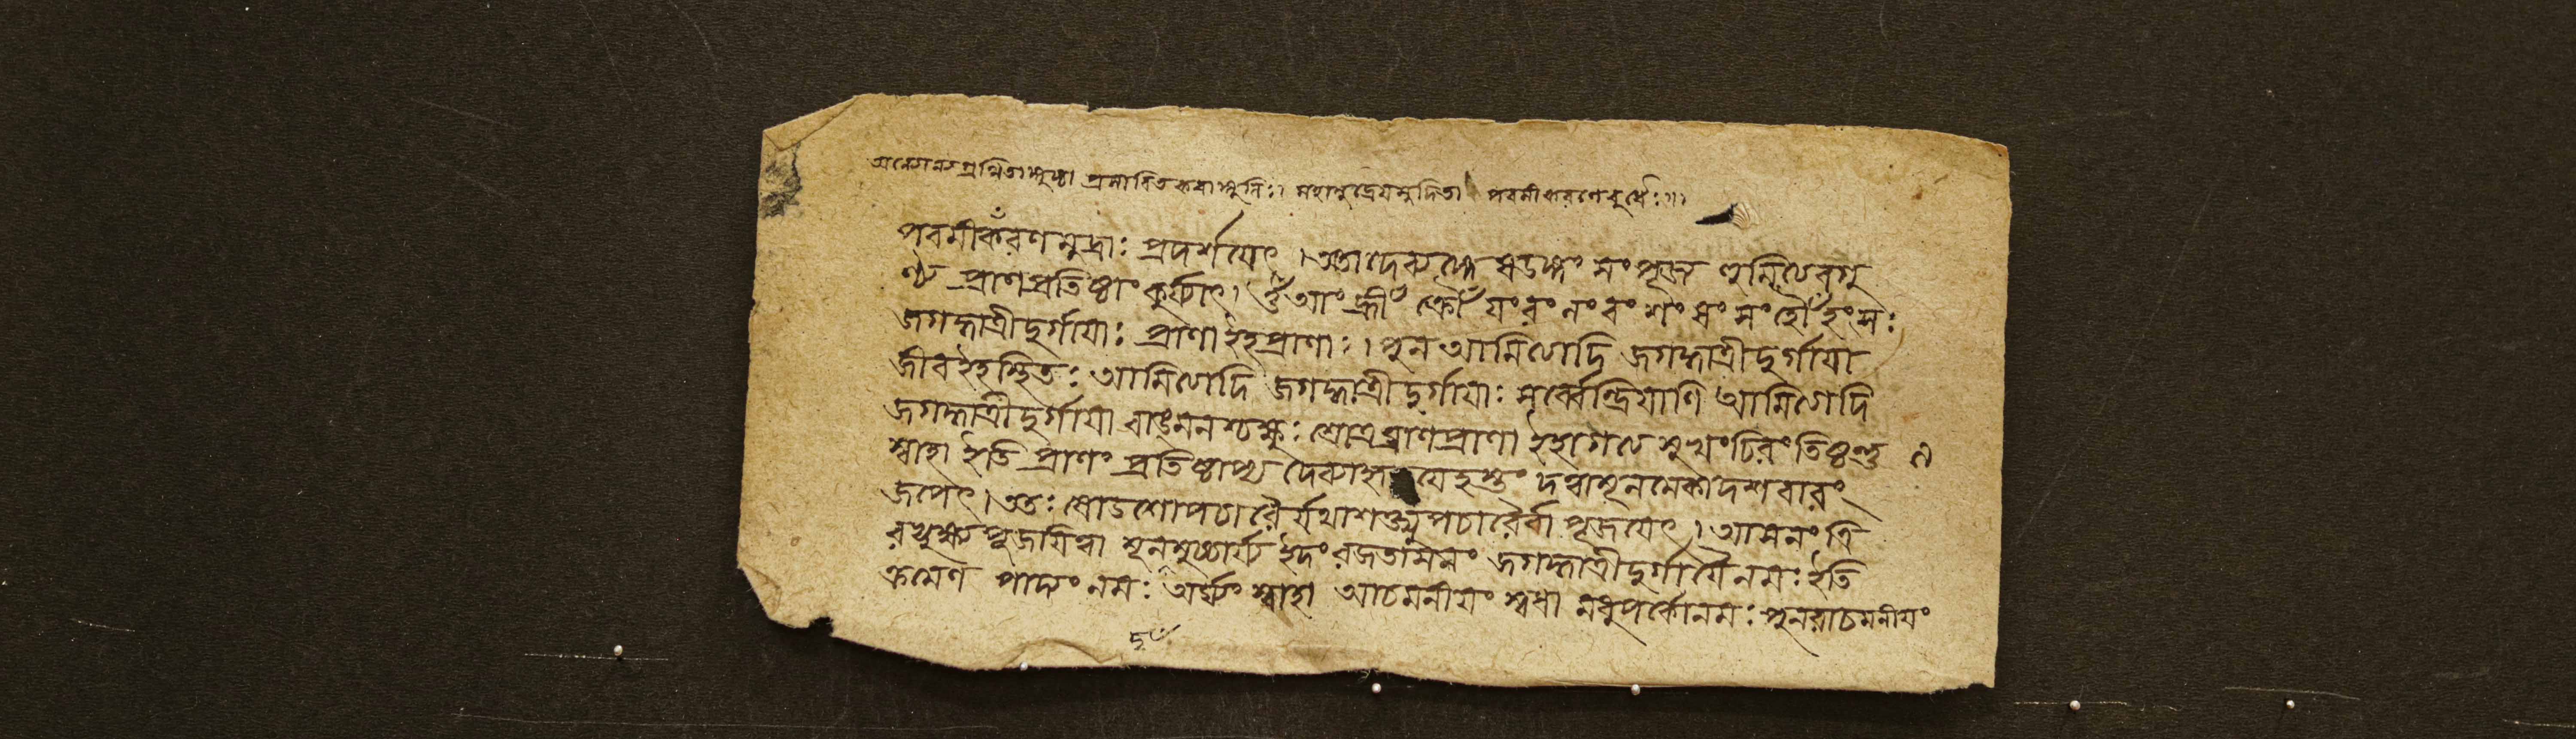 অন্যোন্যগ্রথিতাঙ্গুষ্ঠা প্রসারিতকরাঙ্গুলিঃ। মহামুদ্রেয়মুদিতা পরমীকরণেবুধৈঃ।।
পরমীকরণমুদ্রাঃ প্রদর্শয়েৎ। ততোদেব্যঙ্গে ষডঙ্গং সংপূজ্য
প্রাণপ্রতিষ্ঠাং কুর্য্যাৎ। ওঁ আং হ্রীঁ ক্রোঁ যং রং লং বং শং ষং সং হৌঁ হংসঃ
জগদ্ধাত্রীদুর্গায়াঃ প্রাণা ইহপ্রাণাঃ। পুন আমিত্যাদি জগদ্ধাত্রীদুর্গায়া
জীবইহস্থিতঃ আমিত্যাদি জগদ্ধাত্রীদুর্গায়াঃ সর্ব্বেন্দ্রিয়াণি আমিত্যাদি
জগদ্ধাত্রীদুর্গায়া বাঙ্মনশ্চক্ষুঃ শ্রোত্রঘ্রাণপ্রাণা ইহাগত্য সুখংচিরংতিষ্ঠন্তু
স্বাহা ইতি প্রাণং প্রতিষ্ঠাপ্য হস্তং দত্বামূলমেকাদশবারং
জপেৎ। ততঃ ষোডশোপচারৈর্যথাশক্ত্যুপচারৈর্বা পূজয়েৎ। আসনং ত্রি
রভ্যুক্ষ্য পূজয়িত্বা মূলমুচ্চার্য্য ইদং রজতাসনং জগদ্ধাত্রীদুর্গায়ৈনমঃ ইতি
ক্রমেণ পাদ্যং নমঃ অর্ঘ্যং স্বাহা আচমনীয়ং স্বধা মধুপর্কোনমঃ পুনরাচমনীয়ং